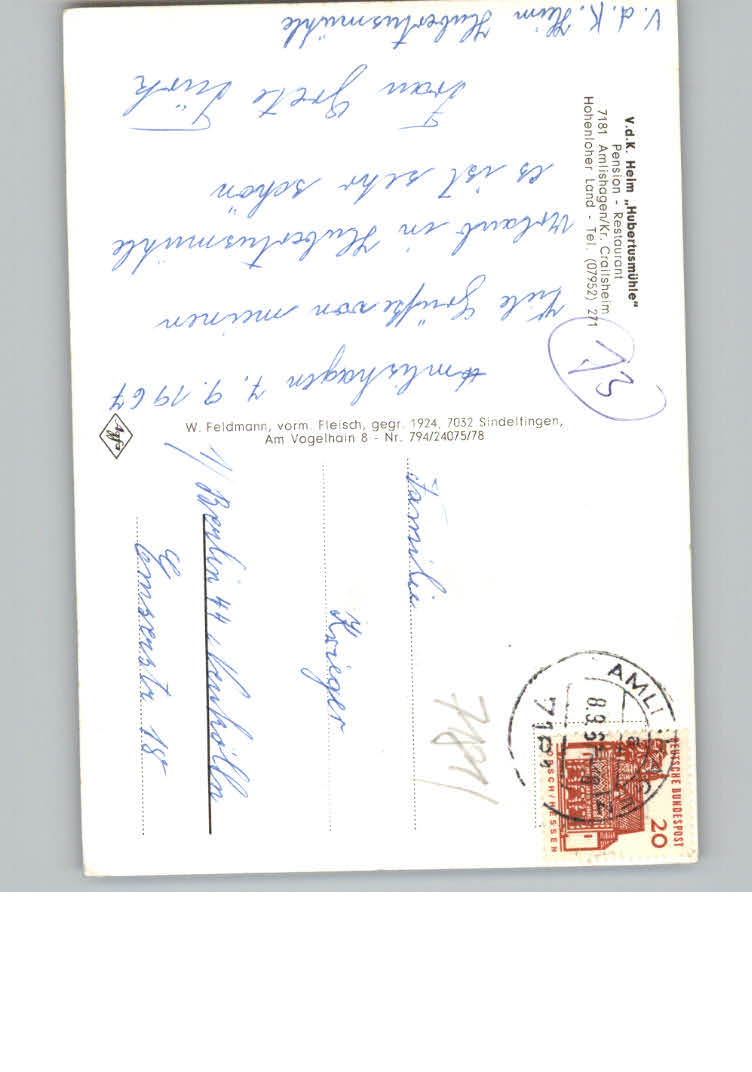 V.d.K. Heim „Hubertusmühle"
Pension - Restaurant
7181 Amlishagen/Kr. Crailsheim
Hohenloher Land - Tel. (07952) 271
13
Amlishagen 7.9.1967
Viele Grüße von meinen
Urlaub in Hubertusmühle
es ist sehr schön
Frau Grete Türk
V.d.K. Heim Hubertusmühle
W. Feldmann, vorm. Fleisch, gegr. 1924, 7032 Sindelfingen,
Am Vogelhain 8 - Nr. 794/24075/78
Agfa
DEUTSCHE BUNDESPOST
20
LORSCH/HESSEN
AMLI
718
7181
Familie
Krieger
1/Berlin 44, Neukölln
Emserstr. 18